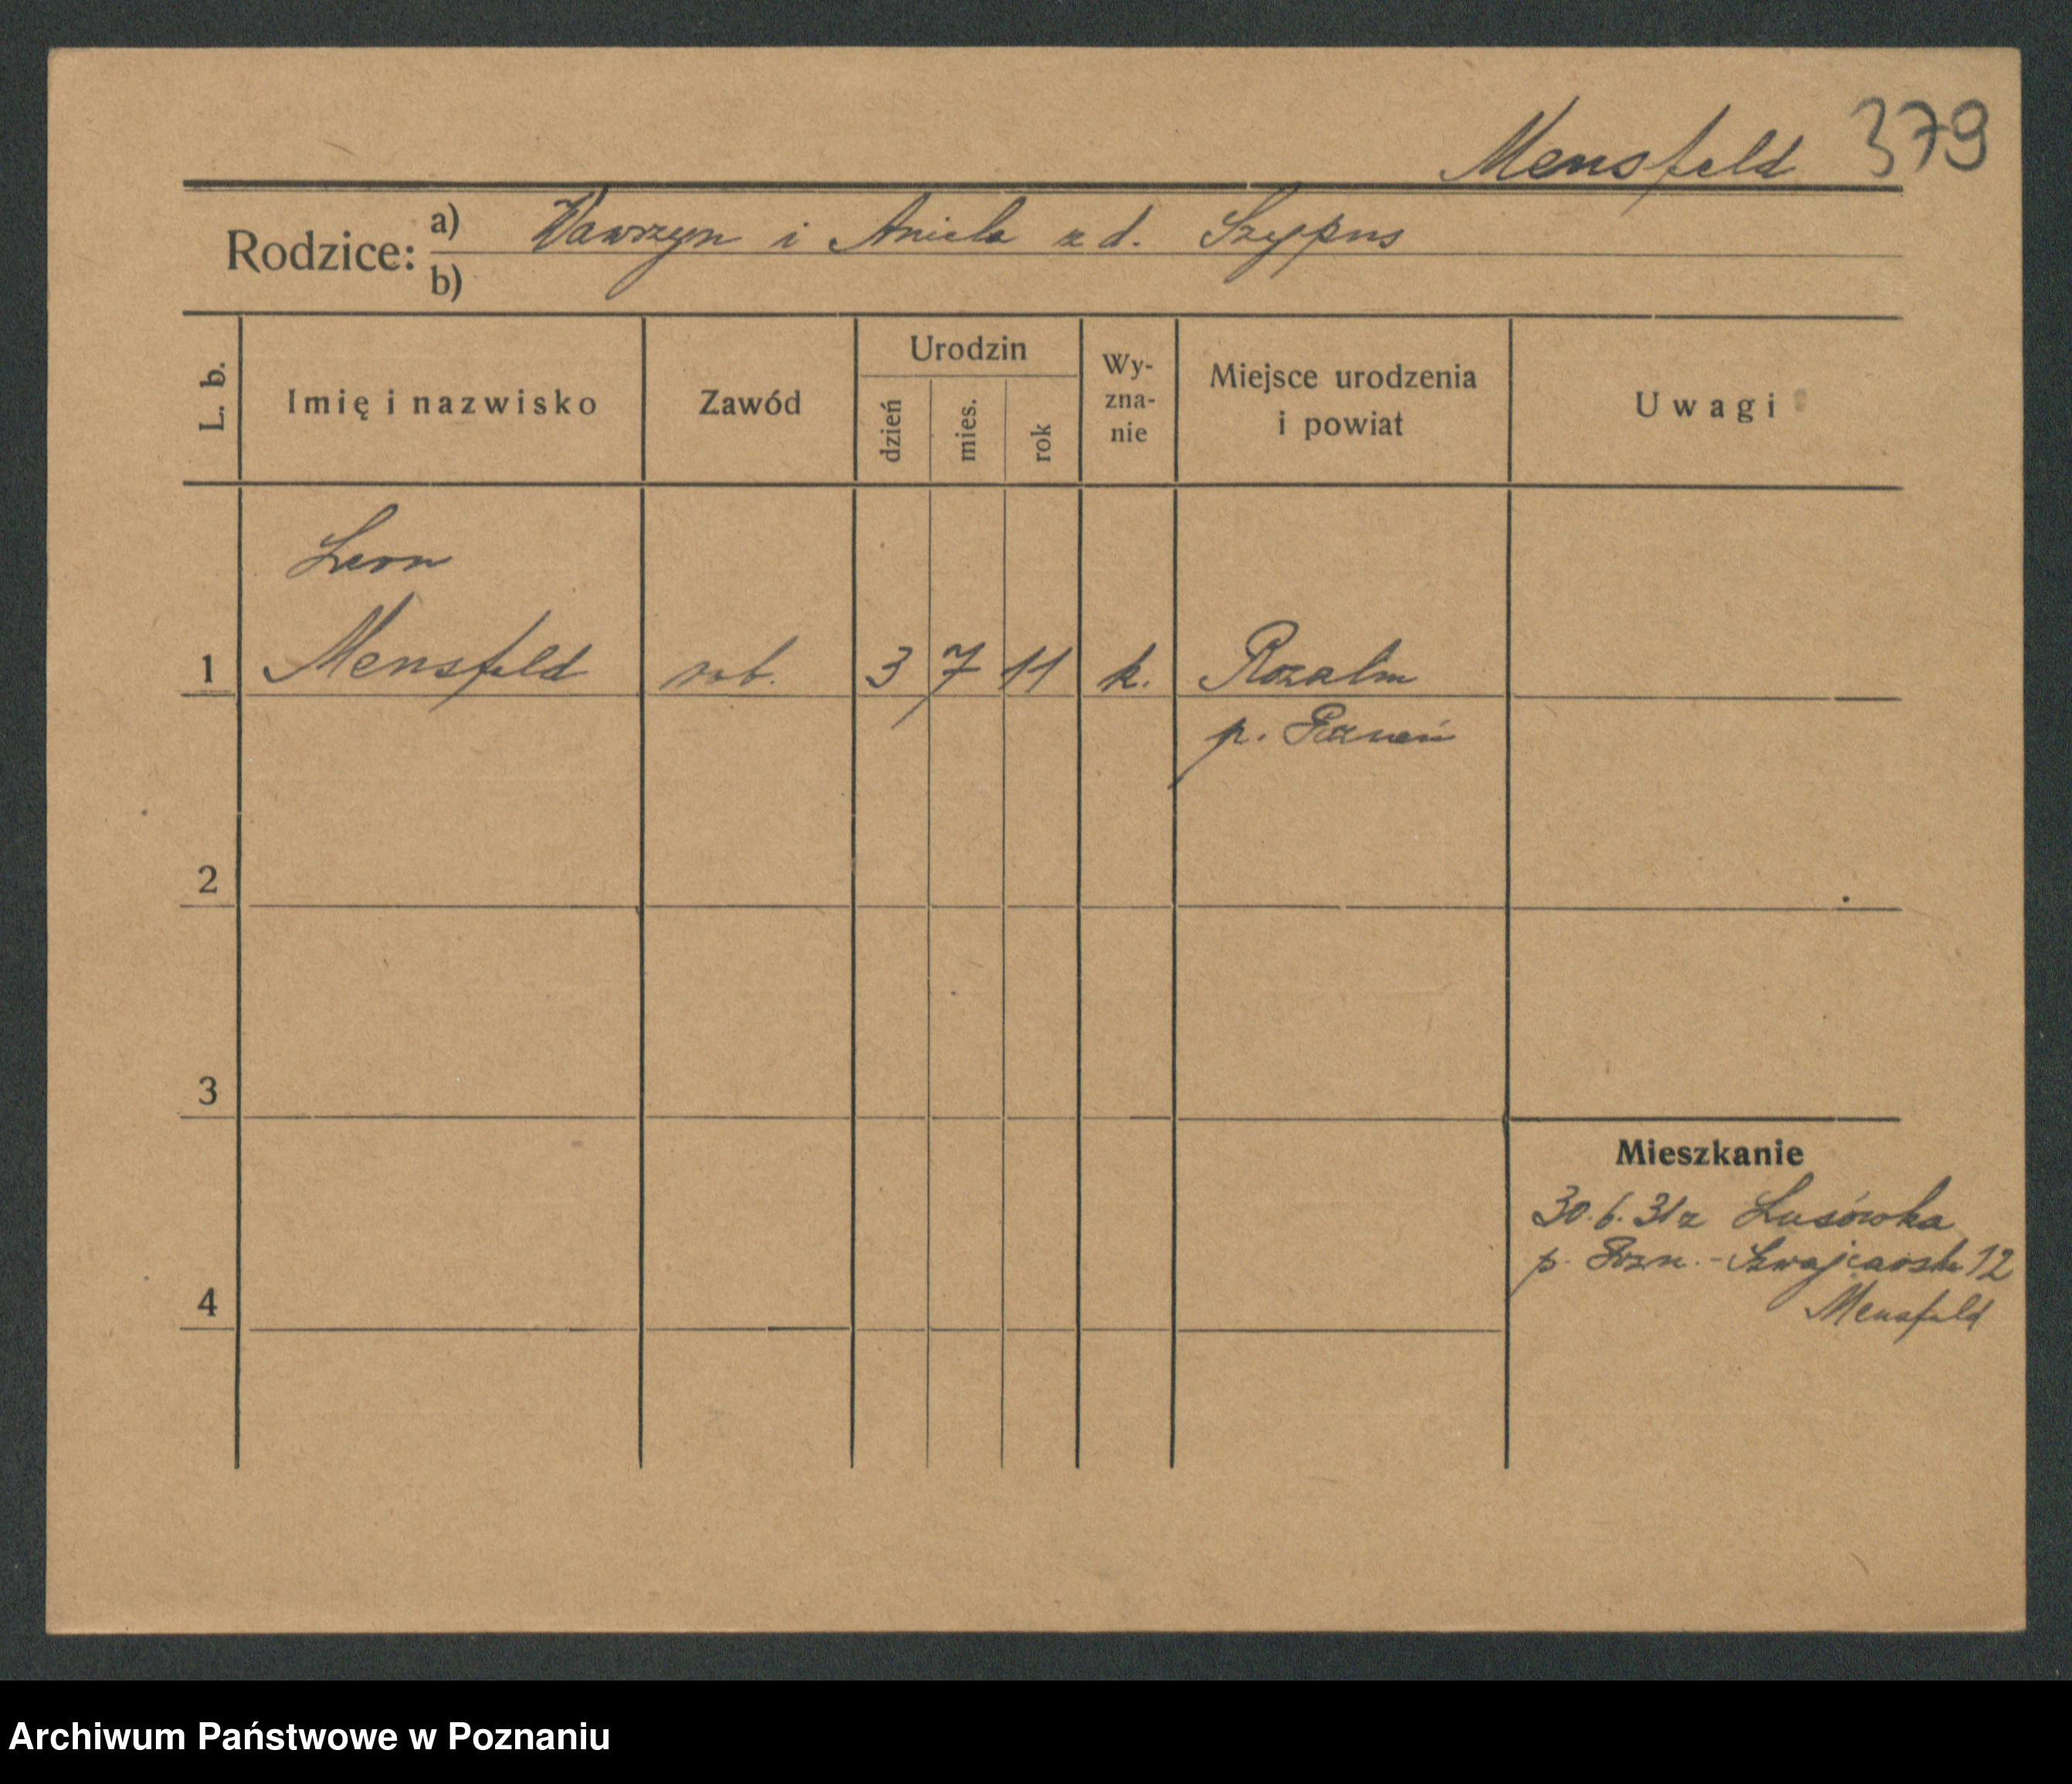 Mensfeld 379
Rodzice: a) Wawrzyn i Aniela z d. Szypus
b)
L. b. Imię i nazwisko Zawód Urodzin dzień mies. rok Wy-zna-nie Miejsce urodzenia i powiat Uwagi
Leon
1 Mensfeld rob. 3 7 11 k.
p. Poznań
2
3
Mieszkanie
30.6.31 z Lusówka
p. Pozn. - Szwajcarska 12
4
Mensfeld
Archiwum Państwowe w Poznaniu